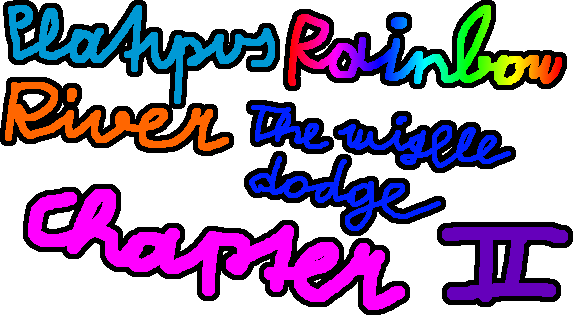 Platypus Rainbow
River The wislle
dodge
Chapter II